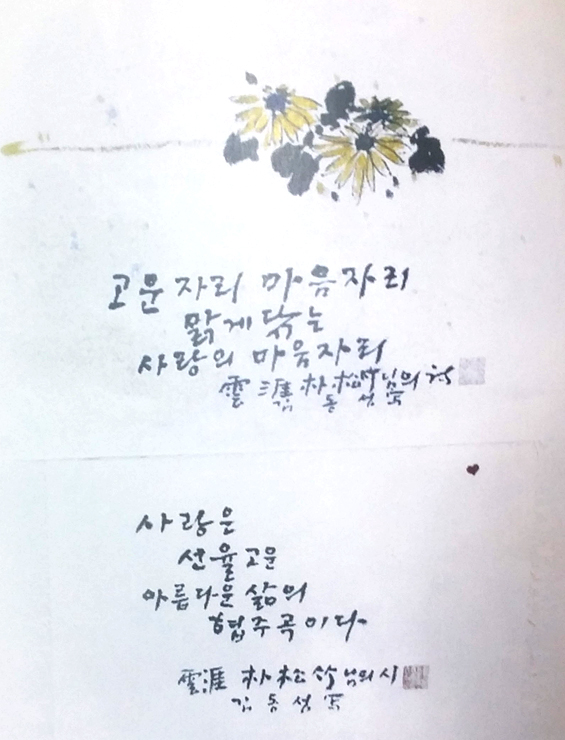 고운자리 마음자리
맑게 닦는
사랑의 마음자리
雲涯 朴松竹님의 시
김동성 写
사랑은
선율 고운
아름다운 삶의
협주곡이다
雲涯 朴松竹님의 시
김동성 写